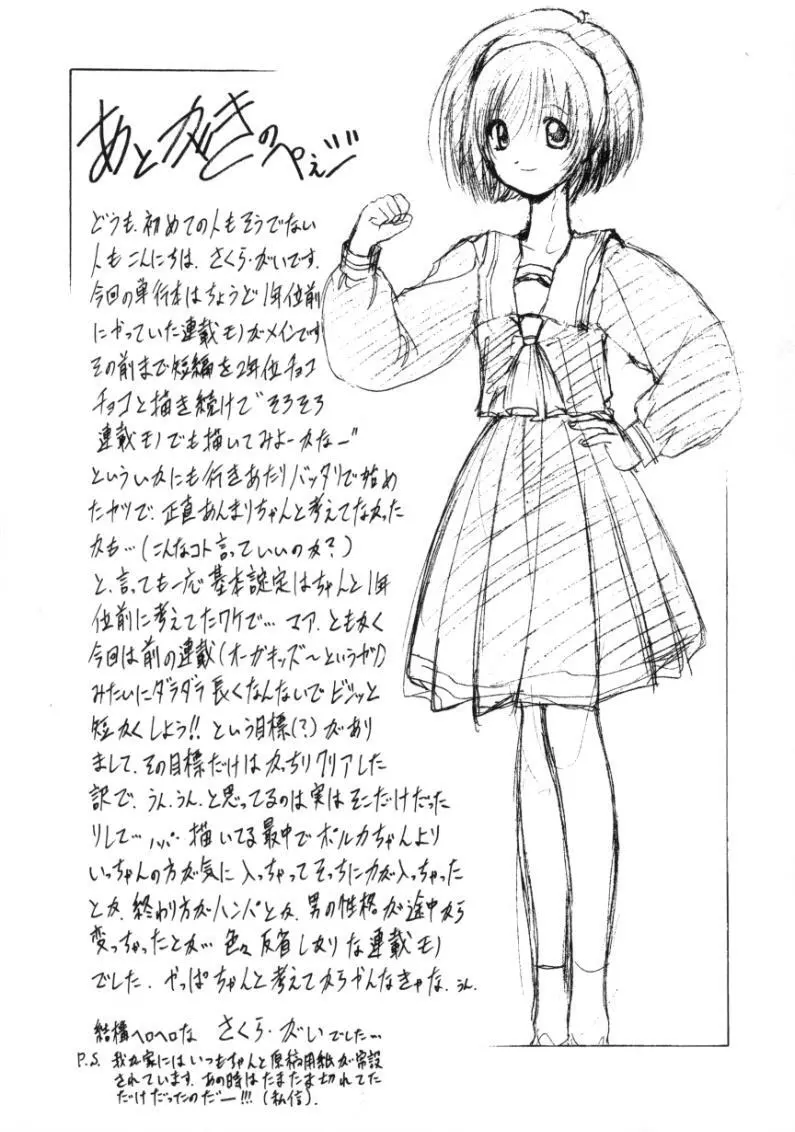 あとがきのぺぇジ
どうも、初めての人もそうでない
人もこんにちは、さくら・がいです。
今回の単行本はちょうど1年位前
にやっていた連載モノがメインです
その前まで短編を2年位チョコ
チョコと描き続けて“そろそろ
連載モノでも描いてみよーかなー”
といういかにも行きあたりバッタリで始め
たヤツで、正直あんまりちゃんと考えてなかった
かも…(こんなコト言っていいのか?)
と、言っても一応基本設定はちゃんと1年
位前に考えてたワケで… マア、ともかく
今回は前の連載(オーガキッズ〜というヤツ)
みたいにダラダラ長くなんないでビシッと
短かくしよう!! という目標(?)があり
まして、その目標だけはかっちりクリアした
訳で、うん、うん、と思ってるのは実はそこだけだった
りして… 描いてる最中でポルカちゃんより
いっちゃんの方が気に入っちゃってそっちに力が入っちゃった
とか、終わり方がハンパとか、男の性格が途中から
変っちゃったとか… 色々反省しかりな連載モノ
でした。やっぱちゃんと考えてからかんなきゃな、うん。
結構ヘロヘロな さくら・がいでした…
P.S. 我が家にはいつもちゃんと原稿用紙が常設
されています。あの時はたまたま切れてた
だけだったのだー!!! (私信).